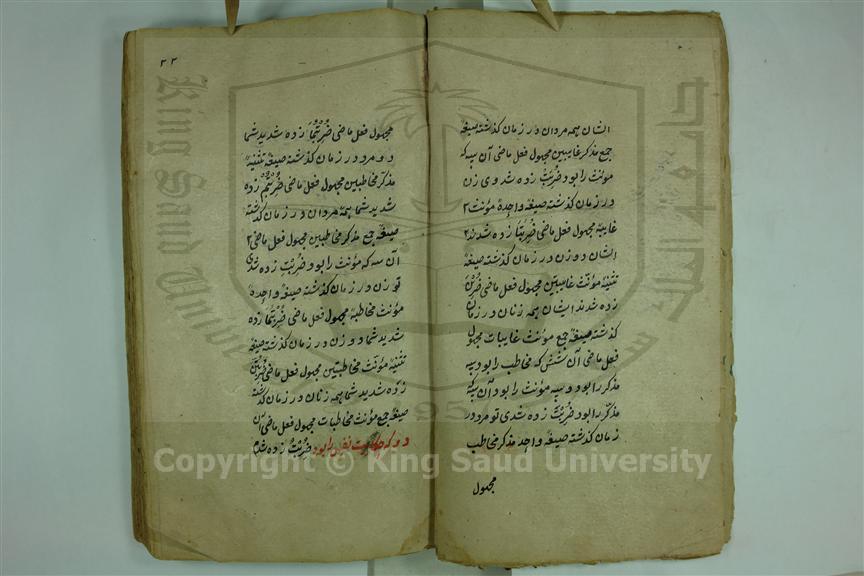 ایشان همه مردان در زمان گذشته صیغهٔ
جمع مذکر غایبین مجهول فعل ماضی آن سه که
مؤنث را بود ضُرِبَتْ زده شد وی زن
در زمان گذشته صیغهٔ واحدهٔ مؤنث
غایبه مجهول فعل ماضی ضُرِبَتَا زده شدند
ایشان دو زن در زمان گذشته صیغهٔ
تثنیهٔ مؤنث غایبتین مجهول فعل ماضی ضُرِبْنَ
زده شدند ایشان همه زنان در زمان
گذشته صیغهٔ جمع مؤنث غایبات مجهول
فعل ماضی آن شش که مخاطب را بود سه
مذکر را بود و سه مؤنث را بود آن سه که
مذکر را بود ضُرِبْتَ زده شدی تو مرد در
زمان گذشته صیغهٔ واحد مذکر مخاطب
مجهول
٢٣
مجهول فعل ماضی ضُرِبْتُمَا زده شدید شما
دو مرد در زمان گذشته صیغهٔ تثنیهٔ
مذکر مخاطبین مجهول فعل ماضی ضُرِبْتُمْ زده
شدید شما همه مردان در زمان گذشته
صیغهٔ جمع مذکر مخاطبین مجهول فعل ماضی
آن سه که مؤنث را بود ضُرِبْتِ زده شدی
تو زن در زمان گذشته صیغهٔ واحدهٔ
مؤنث مخاطبه مجهول فعل ماضی ضُرِبْتُمَا زده
شدید شما دو زن در زمان گذشته صیغهٔ
تثنیهٔ مؤنث مخاطبتین مجهول فعل ماضی ضُرِبْتُنَّ
زده شدید شما همه زنان در زمان گذشته
صیغهٔ جمع مؤنث مخاطبات مجهول فعل ماضی آن
دو که حکایت نفس را بود ضُرِبْتُ زده شدم
King Saud University
جامعة الملك سعود
1957
Copyright © King Saud University